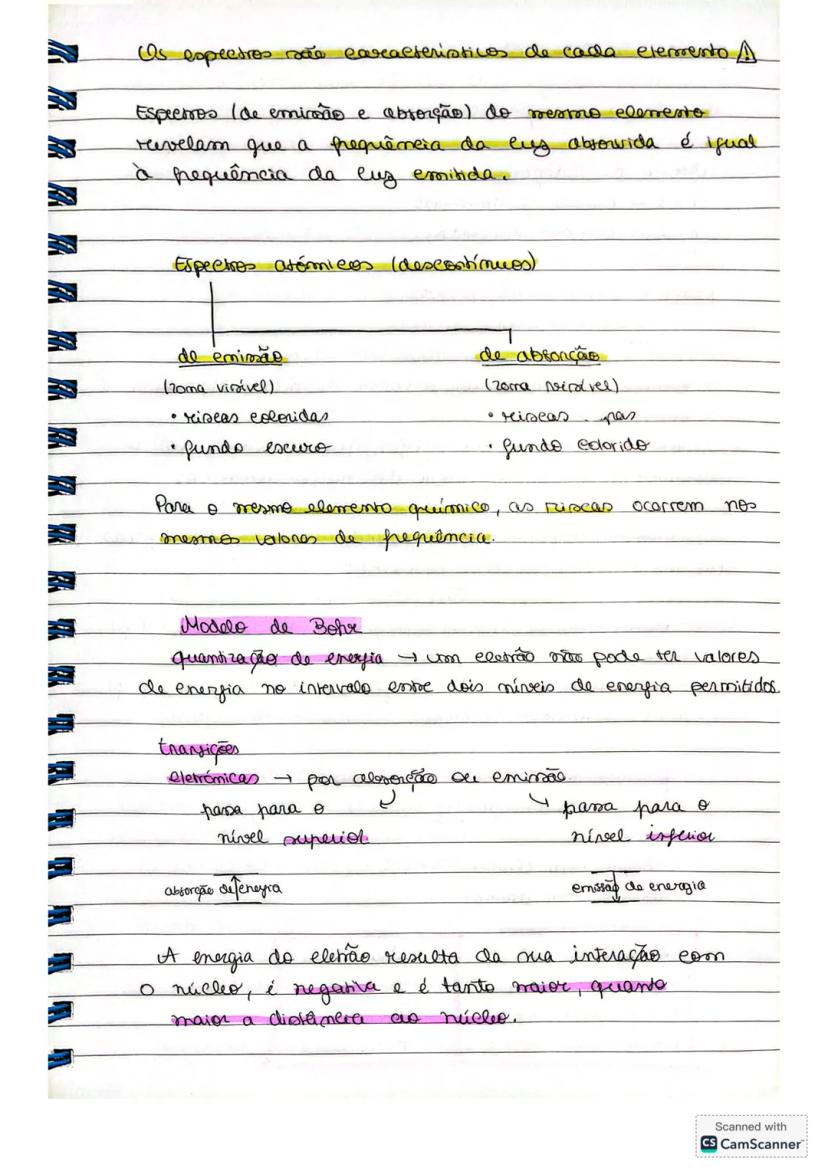 Os espectros são característicos de cada elemento ⚠
Espectros (de emissão e absorção) do mesmo elemento
revelam que a frequência da luz absorvida é igual
à frequência da luz emitida.
Espectros atómicos (descontínuos)
de emissão
de absorção
(zona visível)
(zona visível)
• riscas coloridas
• riscas
• fundo escuro
• fundo colorido
Para o mesmo elemento químico, as riscas ocorrem nos
mesmos valores de frequência.
Modelo de Bohr
quantização de energia → um eletrão não pode ter valores
de energia no intervalo entre dois níveis de energia permitidos.
transições
eletrónicas → por absorção ou emissão
passa para o
passa para o
nível superior
nível inferior
absorção de energia
emissão de energia
A energia do eletrão resulta da sua interação com
o núcleo, é negativa e é tanto maior, quanto
maior a distância ao núcleo.
Scanned with
CS CamScanner